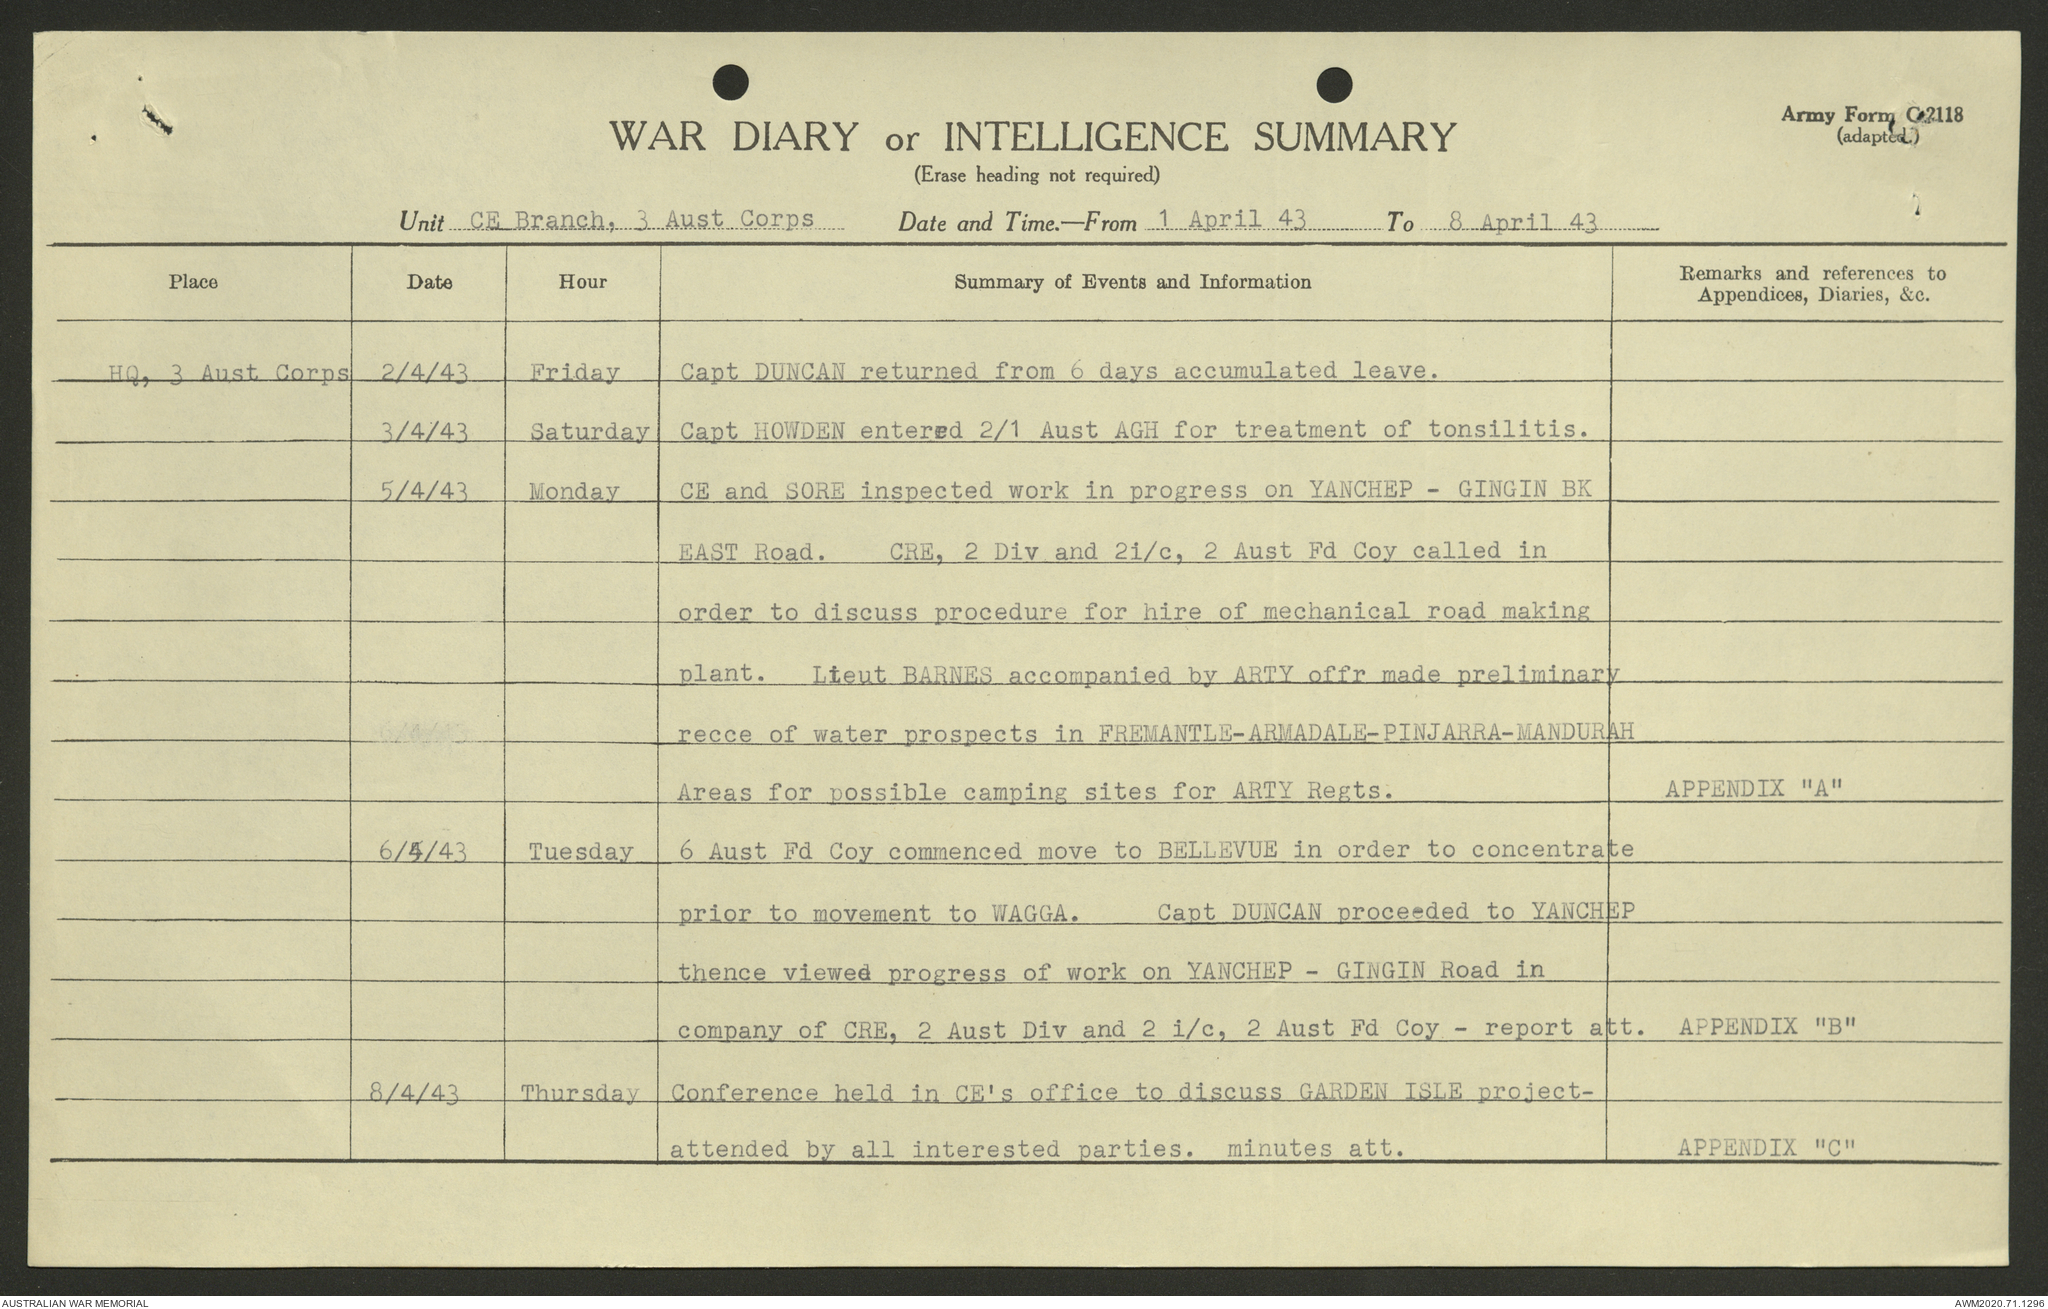 Army Form C.2118
(adapted.)
WAR DIARY or INTELLIGENCE SUMMARY
(Erase heading not required)
Unit CE Branch, 3 Aust Corps Date and Time.—From 1 April 43 To 8 April 43
Place Date Hour Summary of Events and Information Remarks and references to
Appendices, Diaries, &c.
HQ, 3 Aust Corps 2/4/43 Friday Capt DUNCAN returned from 6 days accumulated leave.
3/4/43 Saturday Capt HOWDEN entered 2/1 Aust AGH for treatment of tonsilitis.
5/4/43 Monday CE and SORE inspected work in progress on YANCHEP - GINGIN BK
EAST Road. CRE, 2 Div and 2i/c, 2 Aust Fd Coy called in
order to discuss procedure for hire of mechanical road making
plant. Lieut BARNES accompanied by ARTY offr made preliminary
recce of water prospects in FREMANTLE-ARMADALE-PINJARRA-MANDURAH
Areas for possible camping sites for ARTY Regts. APPENDIX "A"
6/4/43 Tuesday 6 Aust Fd Coy commenced move to BELLEVUE in order to concentrate
prior to movement to WAGGA. Capt DUNCAN proceeded to YANCHEP
thence viewed progress of work on YANCHEP - GINGIN Road in
company of CRE, 2 Aust Div and 2 i/c, 2 Aust Fd Coy - report att. APPENDIX "B"
8/4/43 Thursday Conference held in CE's office to discuss GARDEN ISLE project-
attended by all interested parties. minutes att. APPENDIX "C"
AUSTRALIAN WAR MEMORIAL AWM2020.71.1296